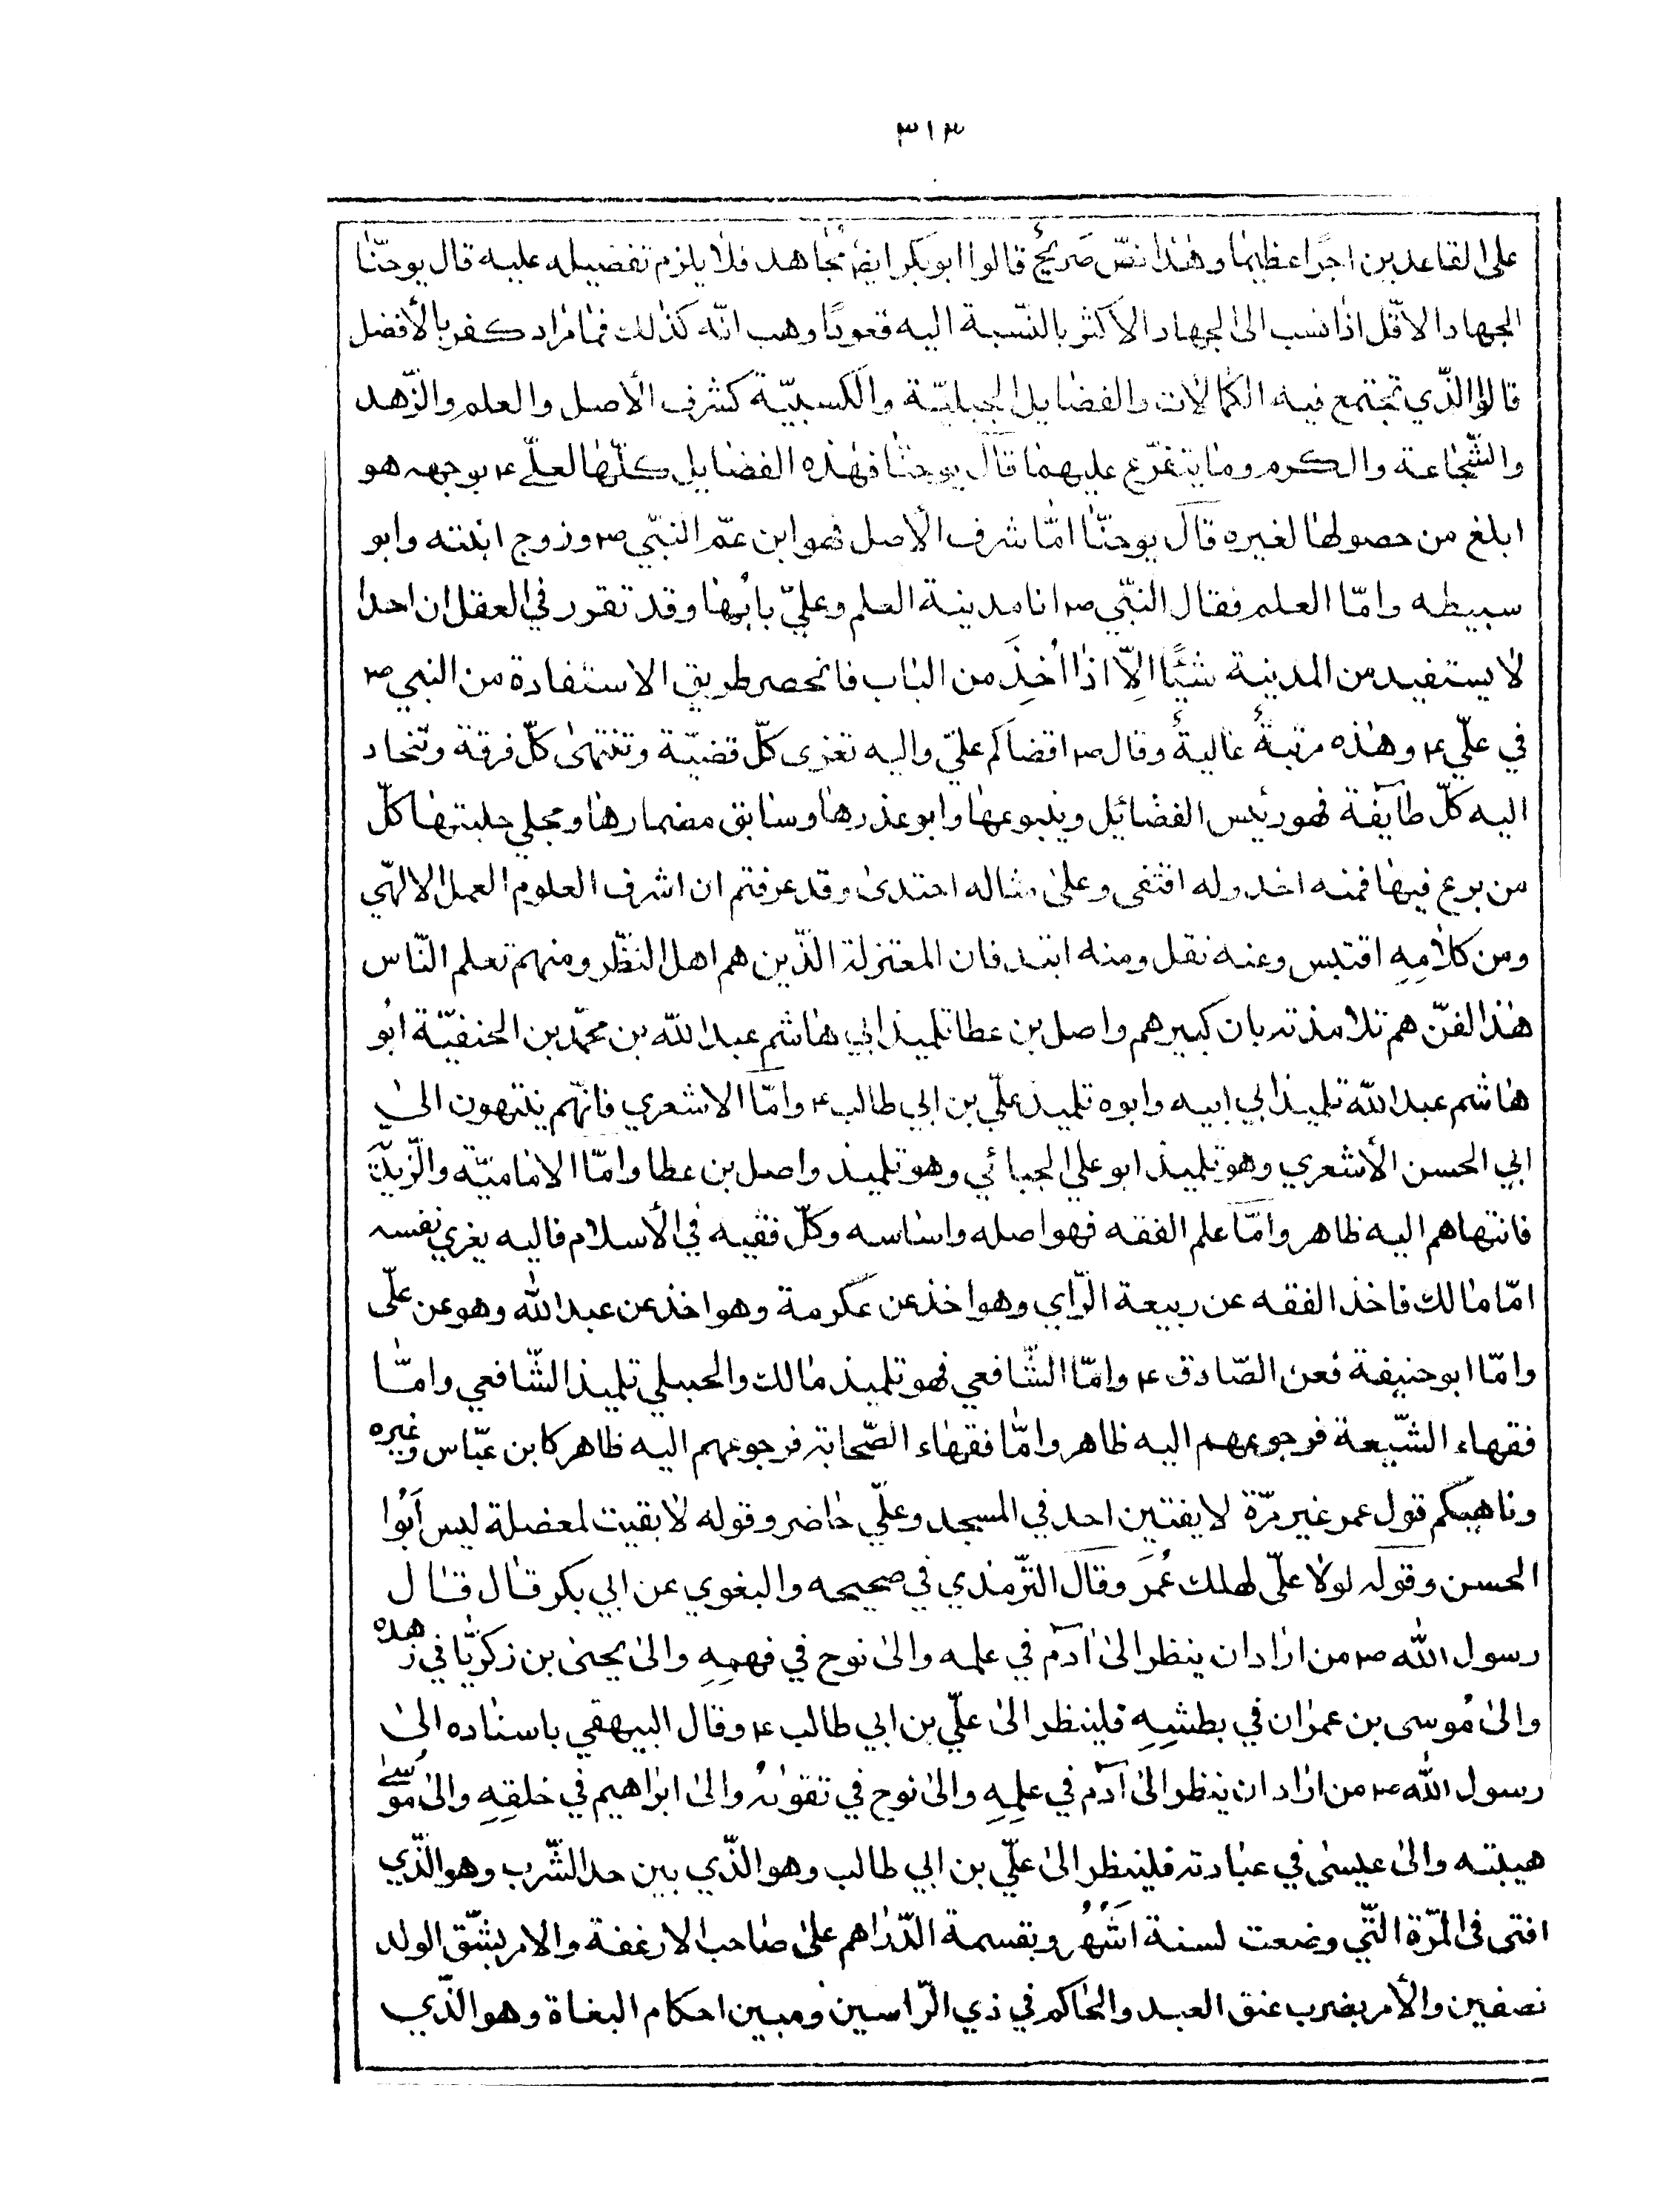 ٣١٣
على القاعدين اجرًا عظيما وهٰذا نصّ صَريحٌ قالوا ابو بكر ايضا مُجاهد فلا يلزم تفضيله عليه قال يوحنّا
الجهاد الاقّل اذا نسب الى الجهاد الاكثر بالنّسبة اليه قعودًا وهب انّه كذلك فما مرادكم بالأفضل
قالوا الّذي تجتمع فيه الكمالات والفضايل الجبليّة والكسبيّة كشرف الأصل والعلم والزّهد
والشّجاعة والكرم وما يتفرّع عليهما قال يوحنّا فهٰذه الفضايل كلّها لعلّي ع بوجهه هو
ابلغ من حصولها لغيره قال يوحنّا امّا شرف الأصل فهو ابن عمّ النبّي ص وزوج ابنته وابو
سبيطه وامّا العلم فقال النبّي ص انا مدينة العلم وعليّ بابُها وقد تقور في العقل ان احدا
لا يستفيد من المدينة شيئًا الّا اذا اُخِذَ من الباب فانحصر طريق الاستفادة من النبي ص
في علّي ع وهٰذه مرتبةٌ عاليةٌ وقال ص اقضاكم عليّ واليه تعزى كلّ قضيّة وتنتهى كلّ فرقة وتنحاد
اليه كلّ طايفة فهو رئيس الفضائيل وينبوعها وابو عذرها وسابق مضمارها ومجلي حلبتها كلّ
من برع فيها فمنه اخد وله اقتفى وعلى مثاله احتدى وقد عرفتم ان اشرف العلوم العمل الالهّي
ومن كلامِهِ اقتبس وعنه نقل ومنه ابتد فان المعتزلة الذّين هم اهل النظّر ومنهم تعلم النّاس
هٰذا الفنّ هم تلامذته بان كبيرهم واصل بن عطا تلميذ ابي هاشم عبد اللّه بن محمّد بن الحنفيّة ابُو
هاشم عبد اللّه تلميذ ابي ابيه وابوه تلميذ علّي بن ابي طالب ع وامّا الاشعري فانّهم ينتهون الىٰ
ابي الحسن الأشعري وهو تلميذ ابو علي الجبائي وهو تلميذ واصل بن عطا وامّا الاماميّة والزّيديّة
فانتهاهم اليه ظاهر وامّا علم الفقه فهو اصله واساسه وكلّ فقيه في الأسلام فاليه يغري نفسه
امّا مالك فاخذ الفقه عن ربيعة الرّاي وهو اخذ عن عكرمة وهو اخذ عن عبد اللّه وهو عن علّى
وامّا ابو حنيفة فعن الصّادق ع وامّا الشّافعي فهو تلميذ مالك والحبيلي تلميذ الشّافعي وامّا
فقهاء الشّيعة فرجوعهم اليه ظاهر وامّا فقهاء الصّحابة فرجوعهم اليه ظاهر كابن عبّاس وغيره
وناهيكم قول عمر غير مرّة لا يفتين احد في المسجد وعلّي حاضر وقوله لا بقيت لمعضلة ليس اَبُوا
الحسن وقوله لولا علّى لهلك عُمَر وقال التّرمذي في صحيحه والبغوي عن ابي بكر قال قال
رسول اللّه ص من اراد ان ينظر الىٰ آدم في علمه والىٰ نوح في فهمِهِ والىٰ يحيىٰ بن زكريّا في زهده
والىٰ مُوسى بن عمران في بطشِهِ فلينظر الىٰ علّي بن ابي طالب ع وقال البيهقي باسناده الىٰ
رسول اللّه ص من اراد ان ينظر الىٰ آدم في علمِهِ والىٰ نوح في تقوٰىهُ والىٰ ابراهيم في خلقِهِ والىٰ مُوسىٰ
هيبته والىٰ عيسىٰ في عبادته فلينظر الىٰ علّي بن ابي طالب وهو الّذي بين حد الشّرب وهو الّذي
افتى فى المرّة التّي وضعت لسنة اشَهُرُ وبقسمة الدّراهم علىٰ صاحب الارغفة والامر بشّق الولد
نصفين والأمر بضرب عنق العبد والحاكم في ذي الرّاسين ومبين احكام البغاة وهو الّذي